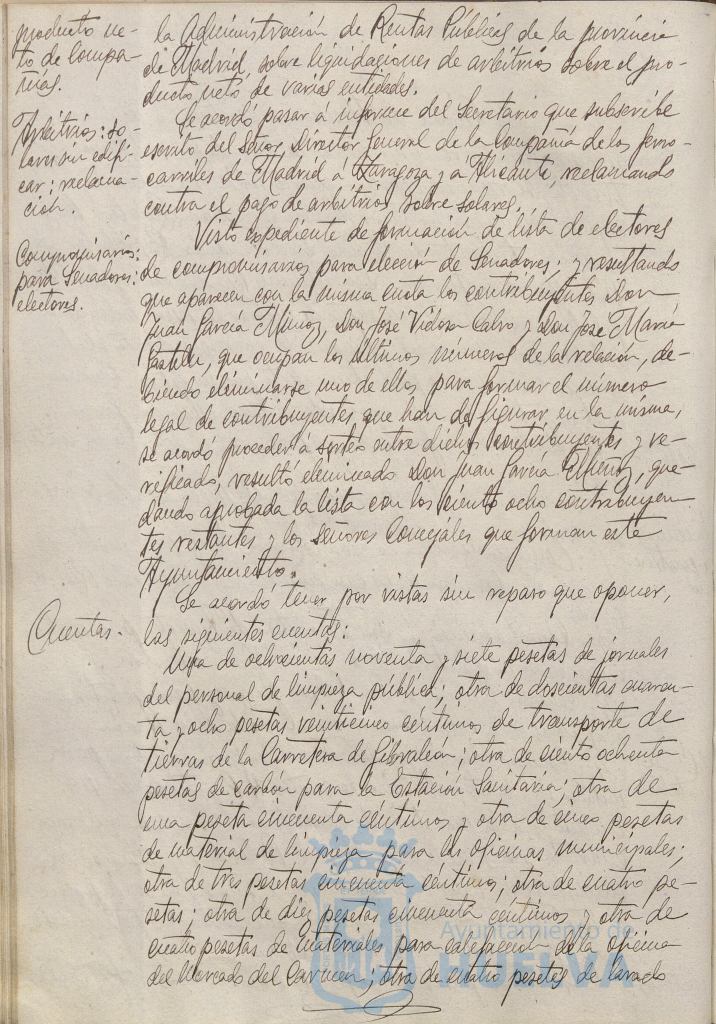 producto ne-
to de Compa-
ñías.
la Administración de Rentas Públicas de la provincia
de Madrid, sobre liquidaciones de arbitrios sobre el pro-
ducto neto de varias entidades.
Arbitrios: so-
lares sin edifi-
car: reclama-
ción.
Se acordó pasar á informe del Secretario que subscribe
escrito del Señor Director General de la Compañía de los ferro-
carriles de Madrid á Zaragoza y a Alicante, reclamando
contra el pago de arbitrios sobre solares.
Compromisarios
para Senadores:
electores.
Visto expediente de formación de lista de electores
de compromisarios para elección de Senadores; y resultando
que aparecen con la misma cuota los contribuyentes Don
Juan García Muñoz, Don José Vidosa Calvo y Don José María
que ocupan los últimos números de la relación, de-
biendo eliminarse uno de ellos para formar el número
legal de contribuyentes que han de figurar en la misma,
se acordó proceder á sorteo entre dichos contribuyentes y ve-
rificado, resultó eliminado Don Juan García Muñoz, que-
dando aprobada la lista con los ciento ocho contribuyen-
tes restantes y los señores Concejales que forman este
Ayuntamiento.
Cuentas.
Se acordó tener por vistas sin reparo que oponer,
las siguientes cuentas:
Una de ochocientas noventa y siete pesetas de jornales
del personal de limpieza pública; otra de doscientas cuaren-
ta y ocho pesetas veinticinco céntimos de transporte de
tierras de la Carretera de Gibraleón; otra de ciento ochenta
pesetas de carbón para la Estación Sanitaria; otra de
una peseta cincuenta céntimos y otra de cinco pesetas
de material de limpieza para las oficinas municipales;
otra de tres pesetas cincuenta céntimos; otra de cuatro pe-
setas; otra de diez pesetas cincuenta céntimos y otra de
cuatro pesetas de materiales para calefacción de la oficina
del Mercado del Carmen; otra de cuatro pesetas de lavado
Ayuntamiento de
HUELVA